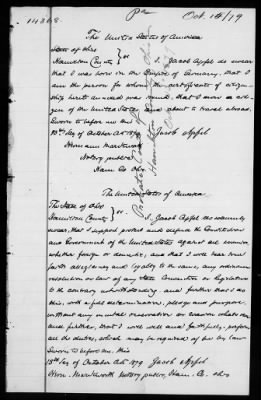 14368
Pa
Oct. 14/79
The United States of America
State of Ohio
Hamilton County } ss. I, Jacob Apfel do swear
that I was born in the Empire of Germany, that I
am the person for whom the certificate of citizen
ship hereto annexed was issued, that I am a citi
zen of the United States and about to travel abroad.
Sworn to before me this
13th day of October A.D. 1879 Jacob Apfel
Notary public
Ham. Co. Ohio
The United States of America
The State of Ohio
Hamilton County } ss. I, Jacob Apfel do solemnly
swear, that I support protect and defend the Constitution
and Government of the United States against all enemies,
whether foreign or domestic, and that I will bear true
faith allegiance and loyalty to the same, any ordinance
resolution or law of any State Convention or Legislature
to the contrary notwithstanding and further that I do
this, with a full determination, pledge and purpose,
without any mental reservation or evasion whatsoever
and further, that I will well and faithfully perform
all the duties, which may be required of me by law
Sworn to before me, this
13th day of October A.D. 1879 Jacob Apfel
notary public, Ham. Co. Ohio